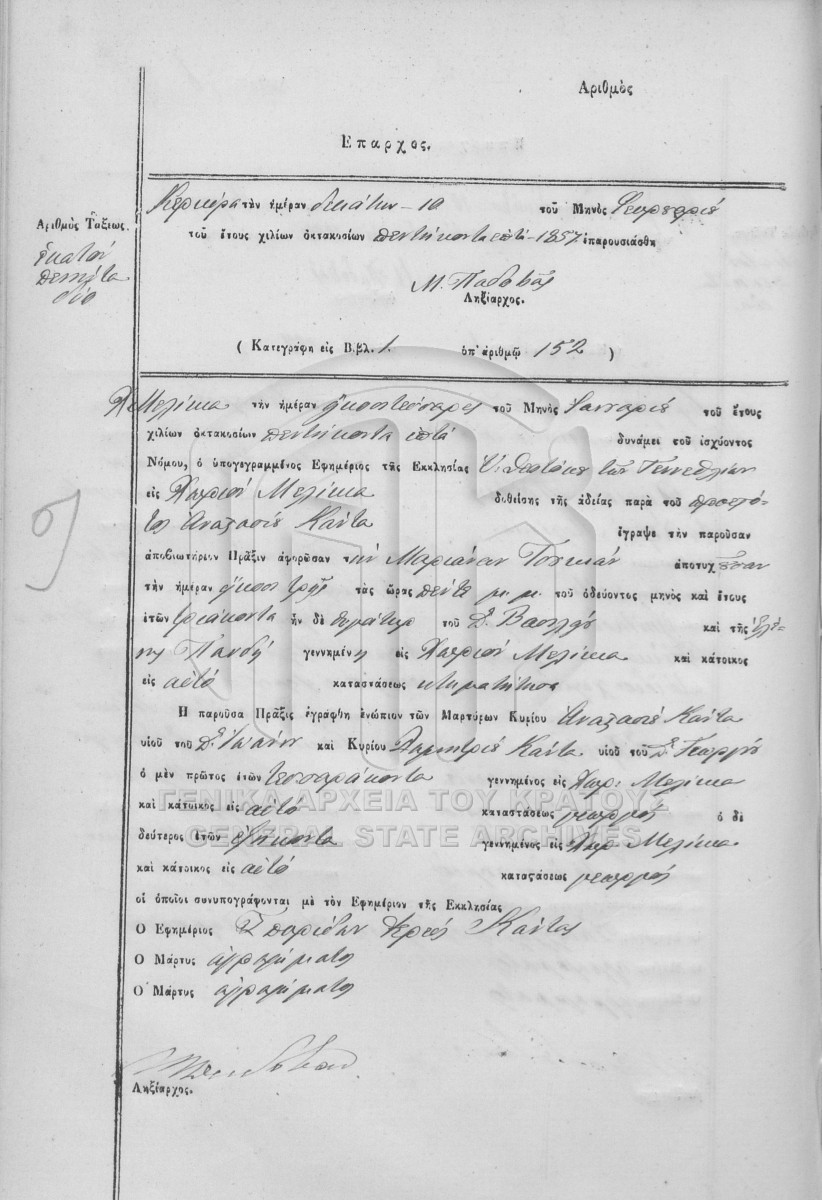 Αριθμὸς
Επαρχος.
Αριθμὸς Τάξεως.
ἑκατὸν
πενῆντα
δύο
Κέρκυρα τὴν ἡμέραν δεκάτην - 10 τοῦ Μηνὸς Φευρουαρίου
τοῦ ἔτους χιλίων ὀκτακοσίων πεντήκοντα ἑπτὰ - 1857 ἐπαρουσιάσθη
Μ. Παδοβᾶς
Ληξίαρχος.
( Κατεγράφη εἰς Βιβλ. 1. ὑπ' ἀριθμῷ 152 )
Μέλικια τὴν ἡμέραν εἴκοσι τέσσαρες τοῦ Μηνὸς Ἰανουαρίου τοῦ ἔτους
χιλίων ὀκτακοσίων πεντήκοντα ἑπτὰ δυνάμει τοῦ ἰσχύοντος
Νόμου, ὁ ὑπογεγραμμένος Εφημέριος τῆς Εκκλησίας Θεοτόκου τῶν Γενεθλίων
εἰς Χωρίον Μέλικια δοθείσης τῆς ἀδείας παρὰ τοῦ προεστό-
τος Αναστασίου Καντα ἔγραψε τὴν παροῦσαν
ἀποβιωτήριον Πρᾶξιν ἀφορῶσαν τὴν Μαριάναν ἀποτυχοῦσαν
τὴν ἡμέραν εἴκοσι τρεῖς τὰς ὥρας πέντε μ. μ. τοῦ ὁδεύοντος μηνὸς καὶ ἔτους
ἐτῶν τριάκοντα ἦν δὲ θυγάτηρ τοῦ Βασίλη καὶ τῆς Ελέ-
νης Πανδῆ γεννημένη εἰς Χωρίον Μέλικια καὶ κάτοικος
εἰς αὐτὸ καταστάσεως κτηματίτισα
Η παροῦσα Πρᾶξις ἐγράφθη ἐνώπιον τῶν Μαρτύρων Κυρίου Αναστασίου Καντα
υἱοῦ τοῦ Ἰωάννη καὶ Κυρίου Δημητρίου Καντα υἱοῦ τοῦ Γεωργίου
ὁ μὲν πρῶτος ἐτῶν τεσσαράκοντα γεννημένος εἰς Χωρ. Μέλικια
καὶ κάτοικος εἰς αὐτὸ καταστάσεως γεωργός ὁ δὲ
δεύτερος ἐτῶν ἑξήκοντα γεννημένος εἰς Χωρ Μέλικια
καὶ κάτοικος εἰς αὐτὸ καταστάσεως γεωργός
οἱ ὁποῖοι συνυπογράφονται μὲ τὸν Εφημέριον τῆς Εκκλησίας
Ο Εφημέριος Σπυρίδων Ιερεύς Κάντας
Ο Μάρτυς ἀγράμματος
Ο Μάρτυς ἀγράμματος
Ληξίαρχος.
ΓΕΝΙΚΑ ΑΡΧΕΙΑ ΤΟΥ ΚΡΑΤΟΥΣ
GENERAL STATE ARCHIVES